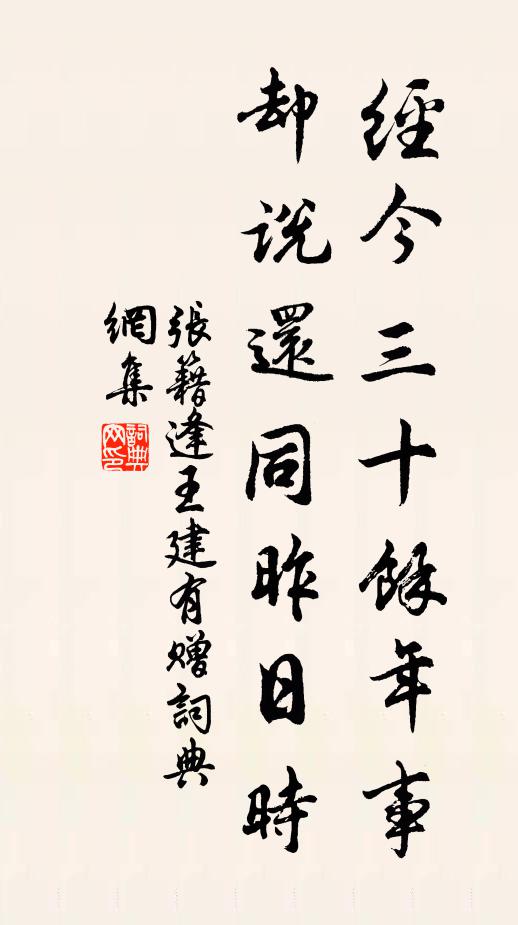 經今三十餘年事
却說還同昨日時
張籍逢王建有贈詞典
網集
詞典
网印